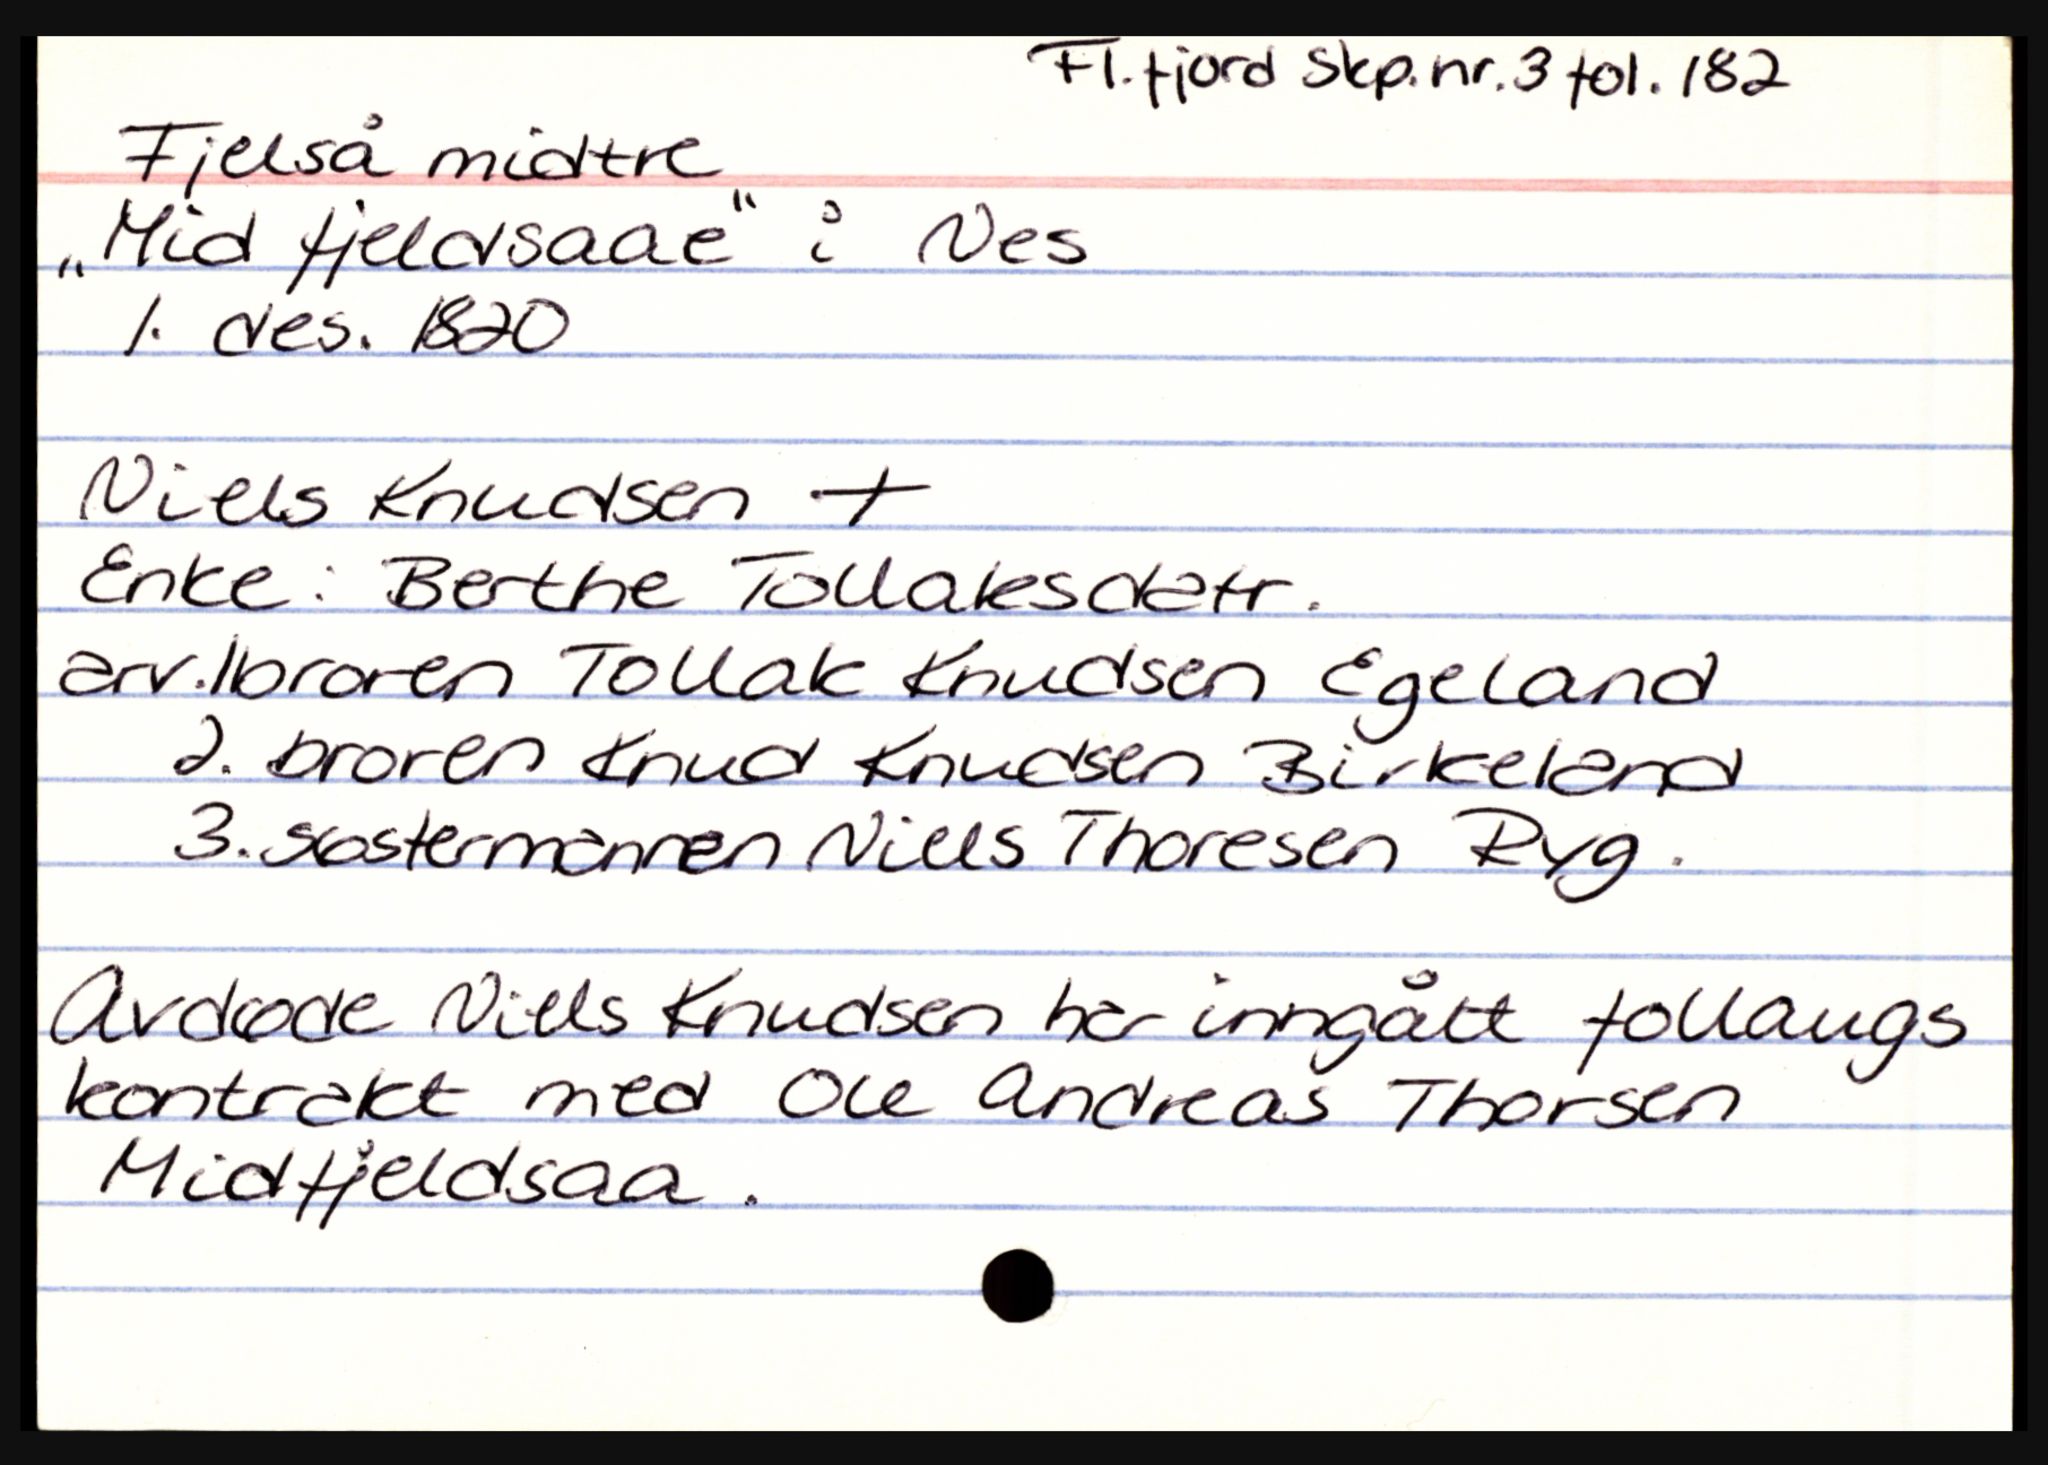 Fl.fjord Skp.nr.3 fol.182
Fjelså midtre
„Mid fjeldsaae“ i Nes
1. des. 1820
Niels Knudsen +
Enke: Berthe Tollaksdatr.
arv.1broren Tollak Knudsen Egeland
2. broren Knud Knudsen Birkeland
3. søstermannen Niels Thoresen Ryg.
Avdøde Niels Knudsen har inngått follaugs
kontrakt med Ole Andreas Thorsen
Midfjeldsaa.